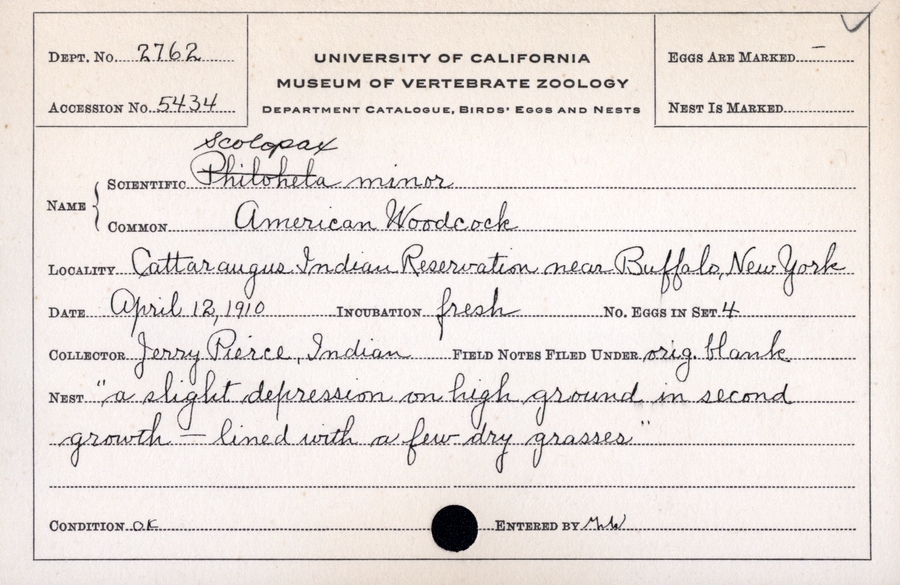 Dept. No. 2762
Accession No. 5434
UNIVERSITY OF CALIFORNIA
MUSEUM OF VERTEBRATE ZOOLOGY
Department Catalogue, Birds' Eggs and Nests
Eggs Are Marked –
Nest Is Marked
Scolopax
Name { Scientific Philohela minor
Common American Woodcock
Locality Cattaraugus Indian Reservation near Buffalo, New York
Date April 12, 1910 Incubation fresh No. Eggs in Set 4
Collector Jerry Pierce, Indian Field Notes Filed Under orig. blank
Nest "a slight depression on high ground in second
growth — lined with a few dry grasses"
Condition OK Entered by